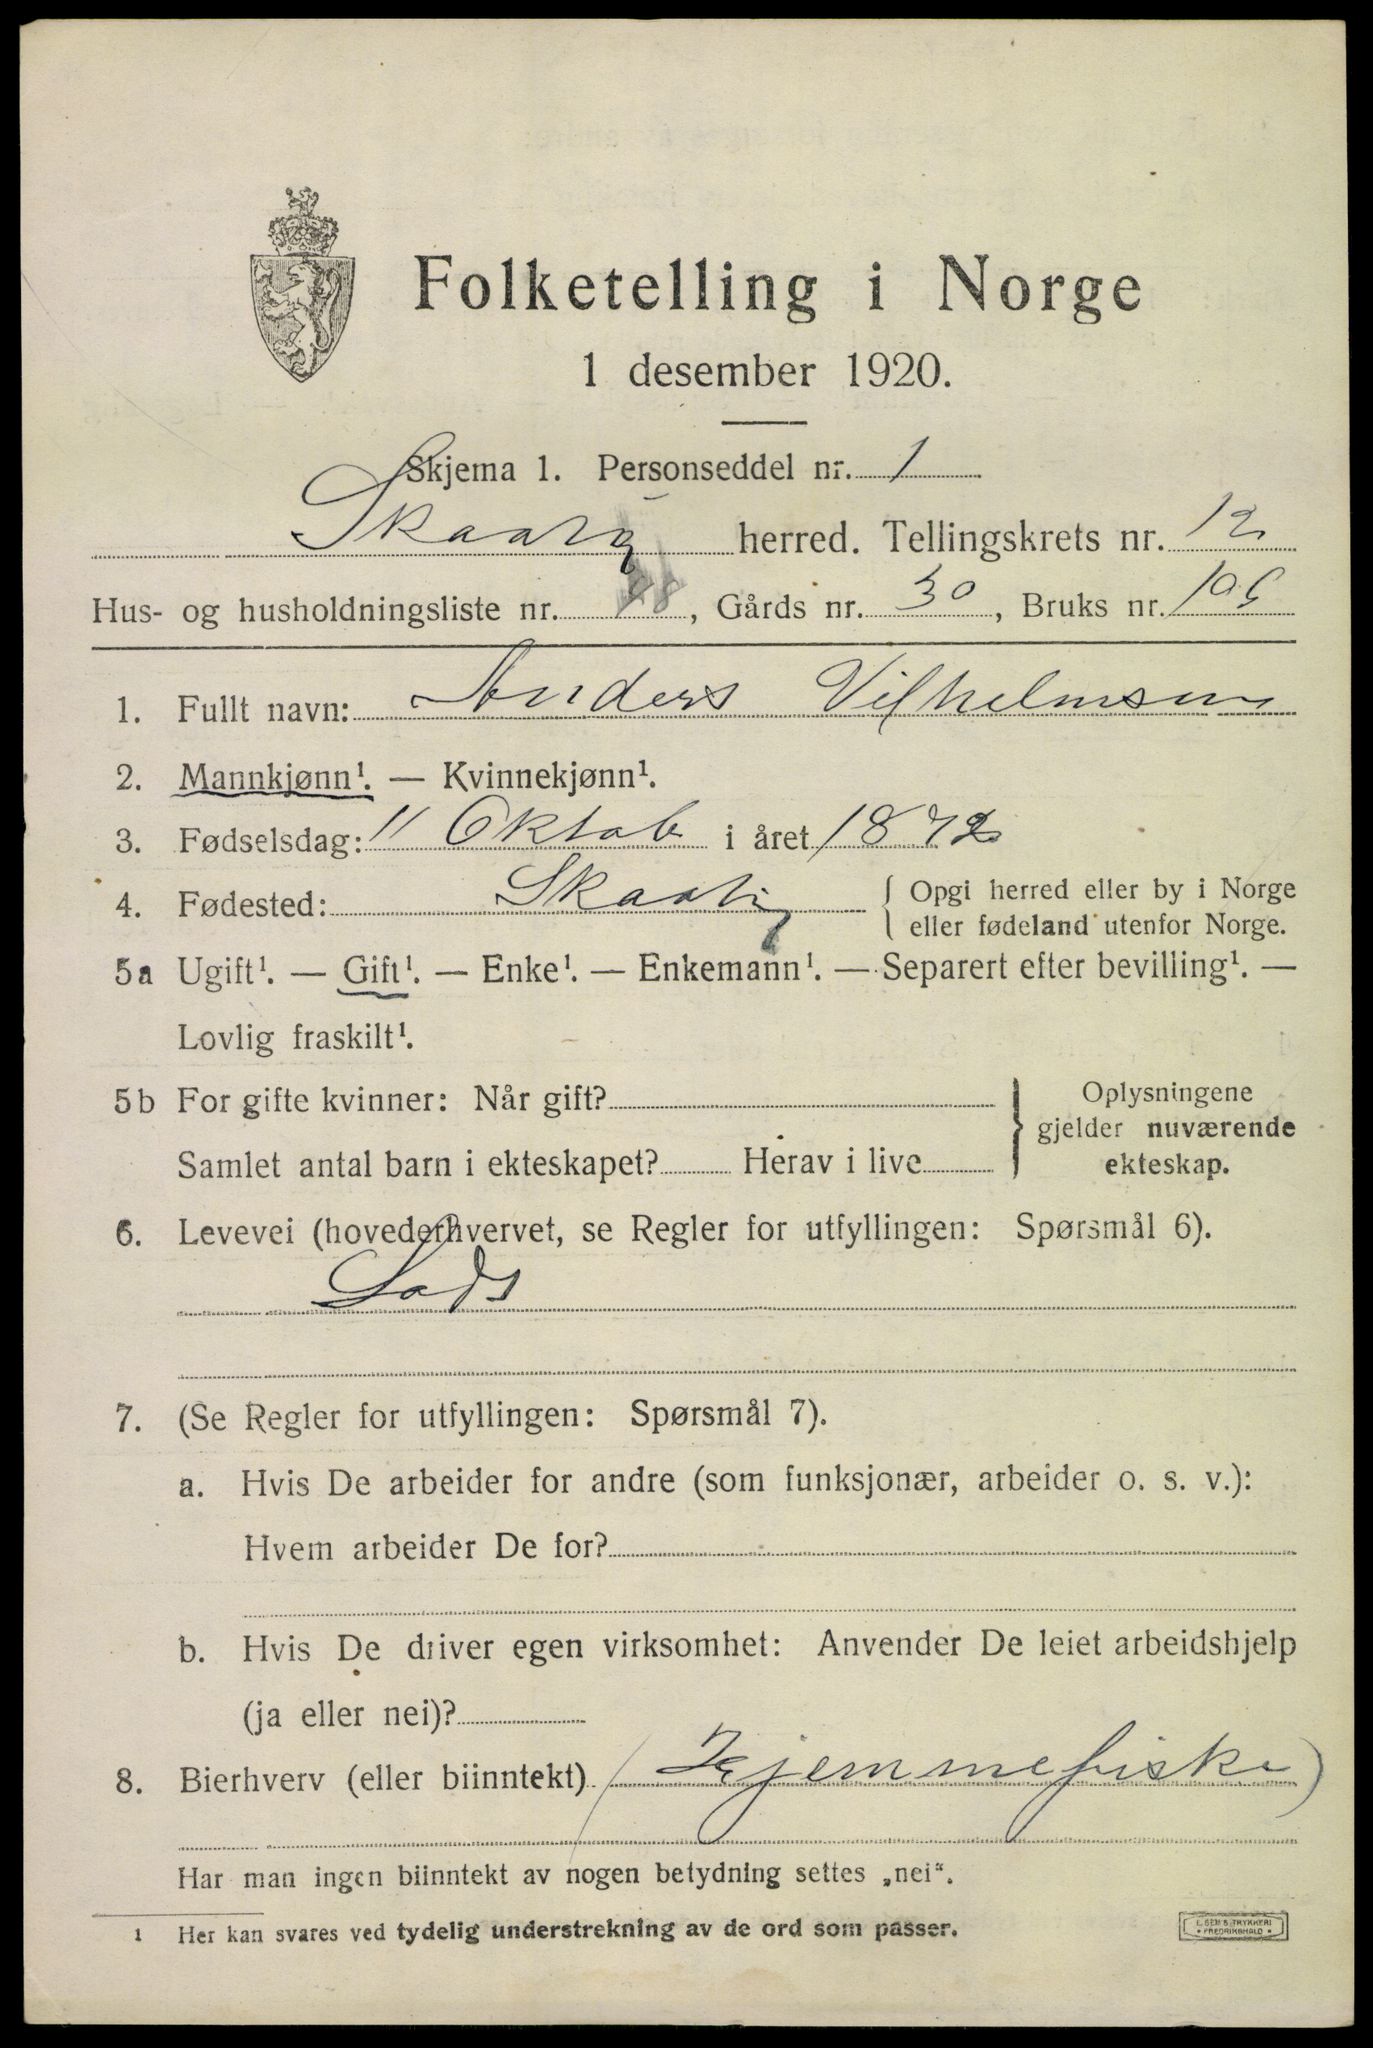 Folketelling i Norge
1 desember 1920.
Skjema 1. Personseddel nr. 1
Skaatø herred. Tellingskrets nr. 12
Hus- og husholdningsliste nr. , Gårds nr. 30, Bruks nr.
1. Fullt navn: Anders Vilhelmsen
2. Mannkjønn¹. — Kvinnekjønn¹.
3. Fødselsdag: 11 Oktob i året 1872
4. Fødested: Skaatø { Opgi herred eller by i Norge
eller fødeland utenfor Norge.
5a Ugift¹. — Gift¹. — Enke¹. — Enkemann¹. — Separert efter bevilling¹. —
Lovlig fraskilt¹.
5b For gifte kvinner: Når gift? } Oplysningene
gjelder nuværende
Samlet antal barn i ekteskapet? Herav i live ekteskap.
6. Levevei (hovederhvervet, se Regler for utfyllingen: Spørsmål 6).
Lods
7. (Se Regler for utfyllingen: Spørsmål 7).
a. Hvis De arbeider for andre (som funksjonær, arbeider o. s. v.):
Hvem arbeider De for?
b. Hvis De driver egen virksomhet: Anvender De leiet arbeidshjelp
(ja eller nei)?
8. Bierhverv (eller biinntekt) (Hjemmefiske)
Har man ingen biinntekt av nogen betydning settes „nei“.
1 Her kan svares ved tydelig understrekning av de ord som passer.
E. SEM S TRYKKERI
• FREDRIKSHALD •